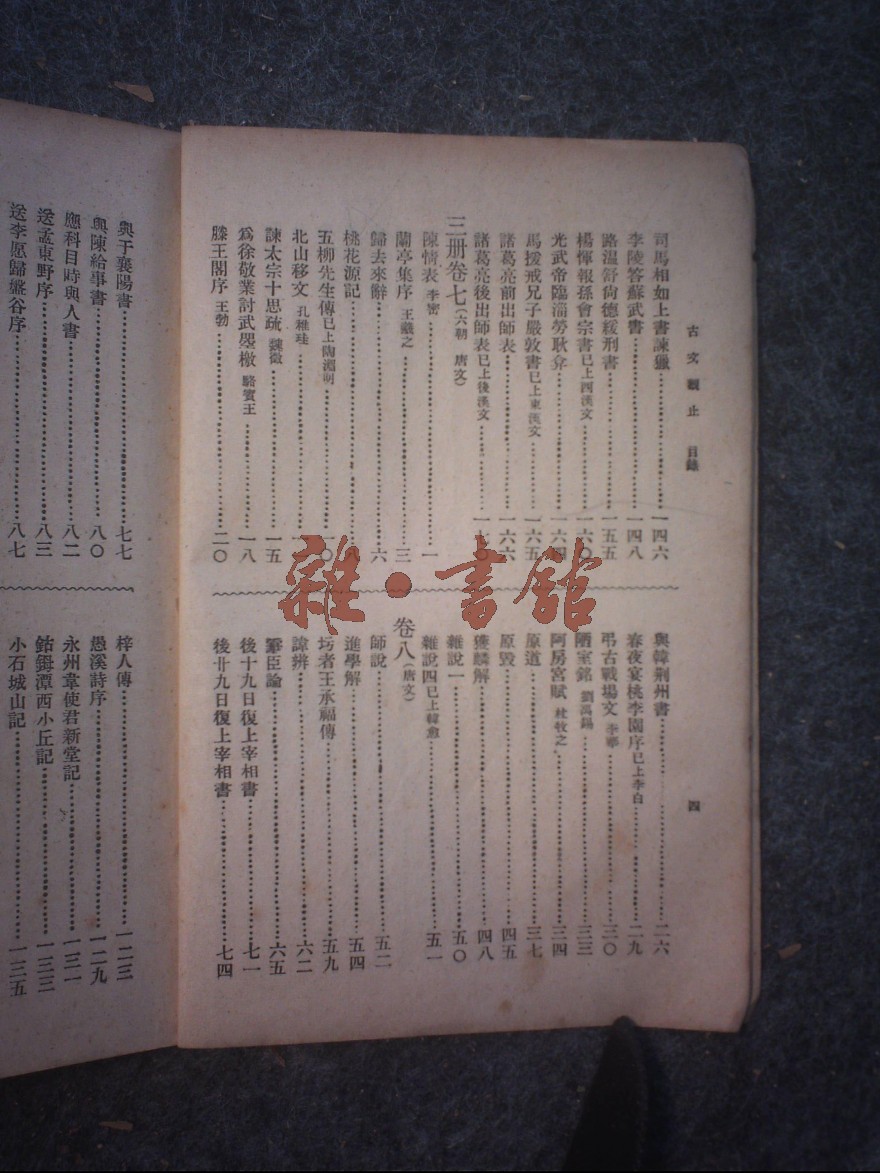 古文觀止 目錄
四
司馬相如上書諫獵 一四六
李陵答蘇武書 一四八
路溫舒尚德緩刑書 一五五
楊惲報孫會宗書 已上西漢文 一六〇
光武帝臨淄勞耿弇 一六四
馬援戒兄子嚴敦書 已上東漢文 一六五
諸葛亮前出師表 一六六
諸葛亮後出師表 已上後漢文 一七〇
三册卷七(六朝 唐文)
陳情表 李密 一
蘭亭集序 王羲之 三
歸去來辭 六
桃花源記 八
五柳先生傳 已上陶淵明 一〇
北山移文 孔稚珪
諫太宗十思疏 魏徵 一五
爲徐敬業討武曌檄 駱賓王 一八
滕王閣序 王勃 二〇
與韓荆州書 二六
春夜宴桃李園序 已上李白 二九
弔古戰場文 李華 三〇
陋室銘 劉禹錫 三三
阿房宮賦 杜牧之 三四
原道 三七
原毀 四五
獲麟解 四八
雜說一 五〇
雜說四 已上韓愈 五一
卷八(唐文)
師說 五二
進學解 五四
圬者王承福傳 五九
諱辨 六二
爭臣論 六五
後十九日復上宰相書 七一
後廿九日復上宰相書 七四
與于襄陽書 七七
與陳給事書 八〇
應科目時與人書 八二
送孟東野序 八三
送李愿歸盤谷序 八七
梓人傳 一二三
愚溪詩序 一二九
永州韋使君新堂記 一三一
鈷鉧潭西小丘記 一三三
小石城山記 一三五
雜·書館